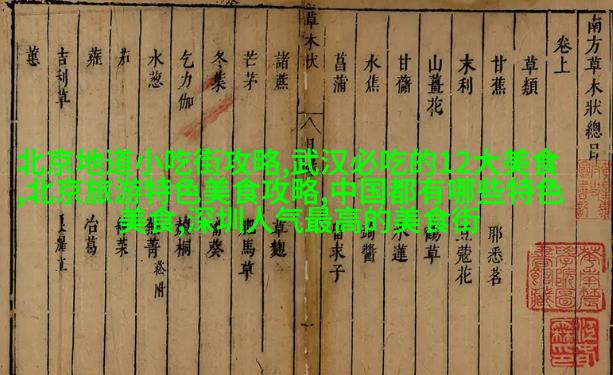 北京地道小吃街攻略,武汉必吃的12大美食
,北京旅游特色美食攻略,中国都有哪些特色
美食,深圳人气最高的美食街
南方草木狀總目
卷上
草類
甘蕉
耶悉茗
末利
蔻花
山薑花
草
甘藷
水蓮
水蕉
醬
菖蒲
求子
草木狀
諸蔗
草麴
芒茅
馬草
冬葉
葵
乞力伽
桐
水葱
菁 菘附
茄
菜
蕹
冶葛
吉利草
蕙